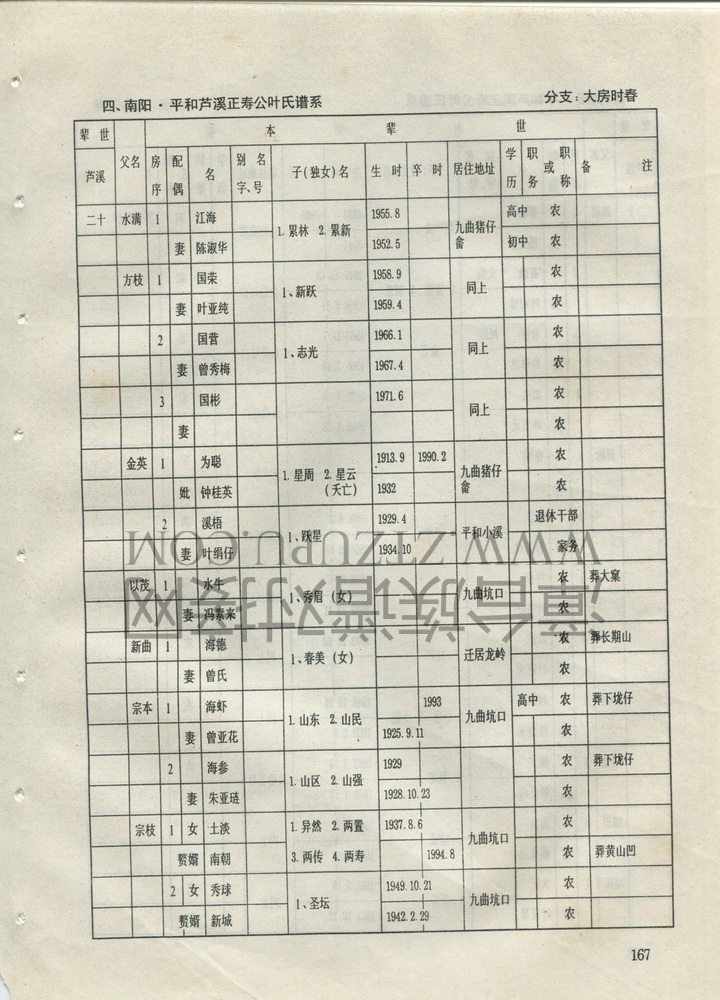 四、南阳·平和芦溪正寿公叶氏谱系 分支：大房时春
辈世 本 辈 世
芦溪 父名 房序 配偶 名 别名字、号 子(独女)名 生时 卒时 居住地址 学历 职务或职称 备注
二十 水满 1 江海 1. 累林 2. 累新 1955.8 九曲猪仔畲 高中 农
妻 陈淑华 1952.5 初中 农
方枝 1 国荣 1、新跃 1958.9 同上 农
妻 叶亚纯 1959.4 农
2 国营 1、志光 1966.1 同上 农
妻 曾秀梅 1967.4 农
3 国彬 1971.6 同上 农
妻 农
金英 1 为聪 1. 星周 2. 星云(夭亡) 1913.9 1990.2 九曲猪仔畲 农
妣 钟桂英 1932 农
2 溪梧 1、跃星 1929.4 平和小溪 退休干部
妻 叶绢仔 1934.10 家务
以茂 1 水牛 1、秀眉（女） 九曲坑口 农 葬大窠
妻 冯素来 农
新曲 1 海德 1、春美（女） 迁居龙岭 农 葬长期山
妻 曾氏 农
宗本 1 海虾 1. 山东 2. 山民 1993 九曲坑口 高中 农 葬下垅仔
妻 曾亚花 1925.9.11 农
2 海参 1. 山区 2. 山强 1929 农 葬下垅仔
妻 朱亚琏 1928.10.23 农
宗枝 1 女 土淡 1. 异然 2. 两置 1937.8.6 九曲坑口 农
赘婿 南朝 3. 两传 4. 两寿 1994.8 农 葬黄山凹
2 女 秀球 1、圣坛 1949.10.21 九曲坑口 农
赘婿 新城 1942.2.29 农
167
WWW.ZTZUPU.COM
漳台族谱对接网